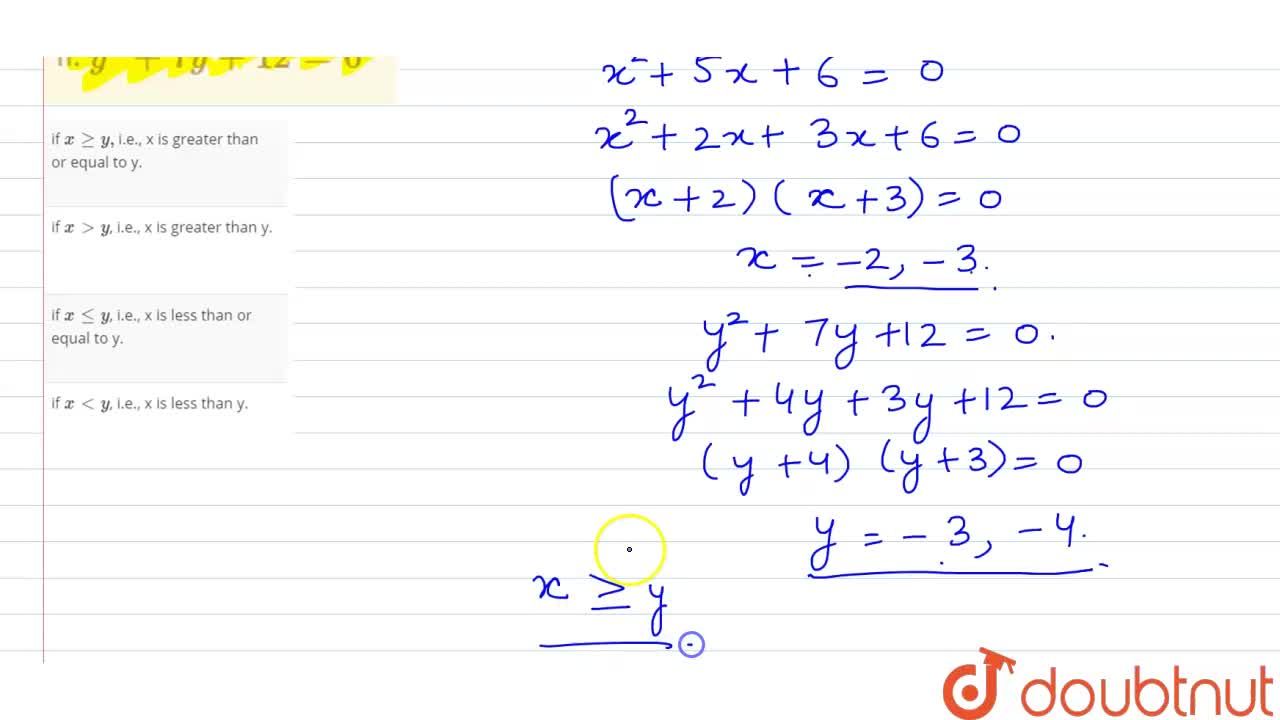 II. y² + 7y + 12 = 0
if x ≥ y, i.e., x is greater than
or equal to y.
if x > y, i.e., x is greater than y.
if x ≤ y, i.e., x is less than or
equal to y.
if x < y, i.e., x is less than y.
x² + 5x + 6 = 0
x² + 2x + 3x + 6 = 0
(x + 2) (x + 3) = 0
x = -2, -3.
y² + 7y + 12 = 0.
y² + 4y + 3y + 12 = 0
(y + 4) (y + 3) = 0
y = -3, -4.
x ≥ y
doubtnut